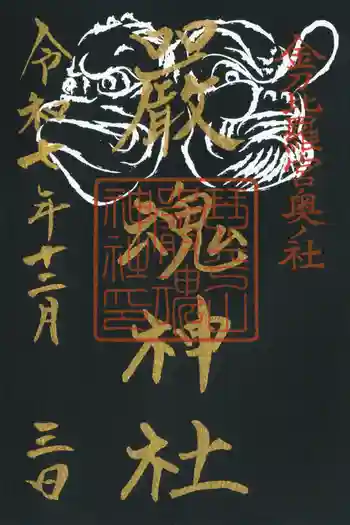 金刀比羅宮奥ノ社
嚴魂神社
令和七年十二月
三日